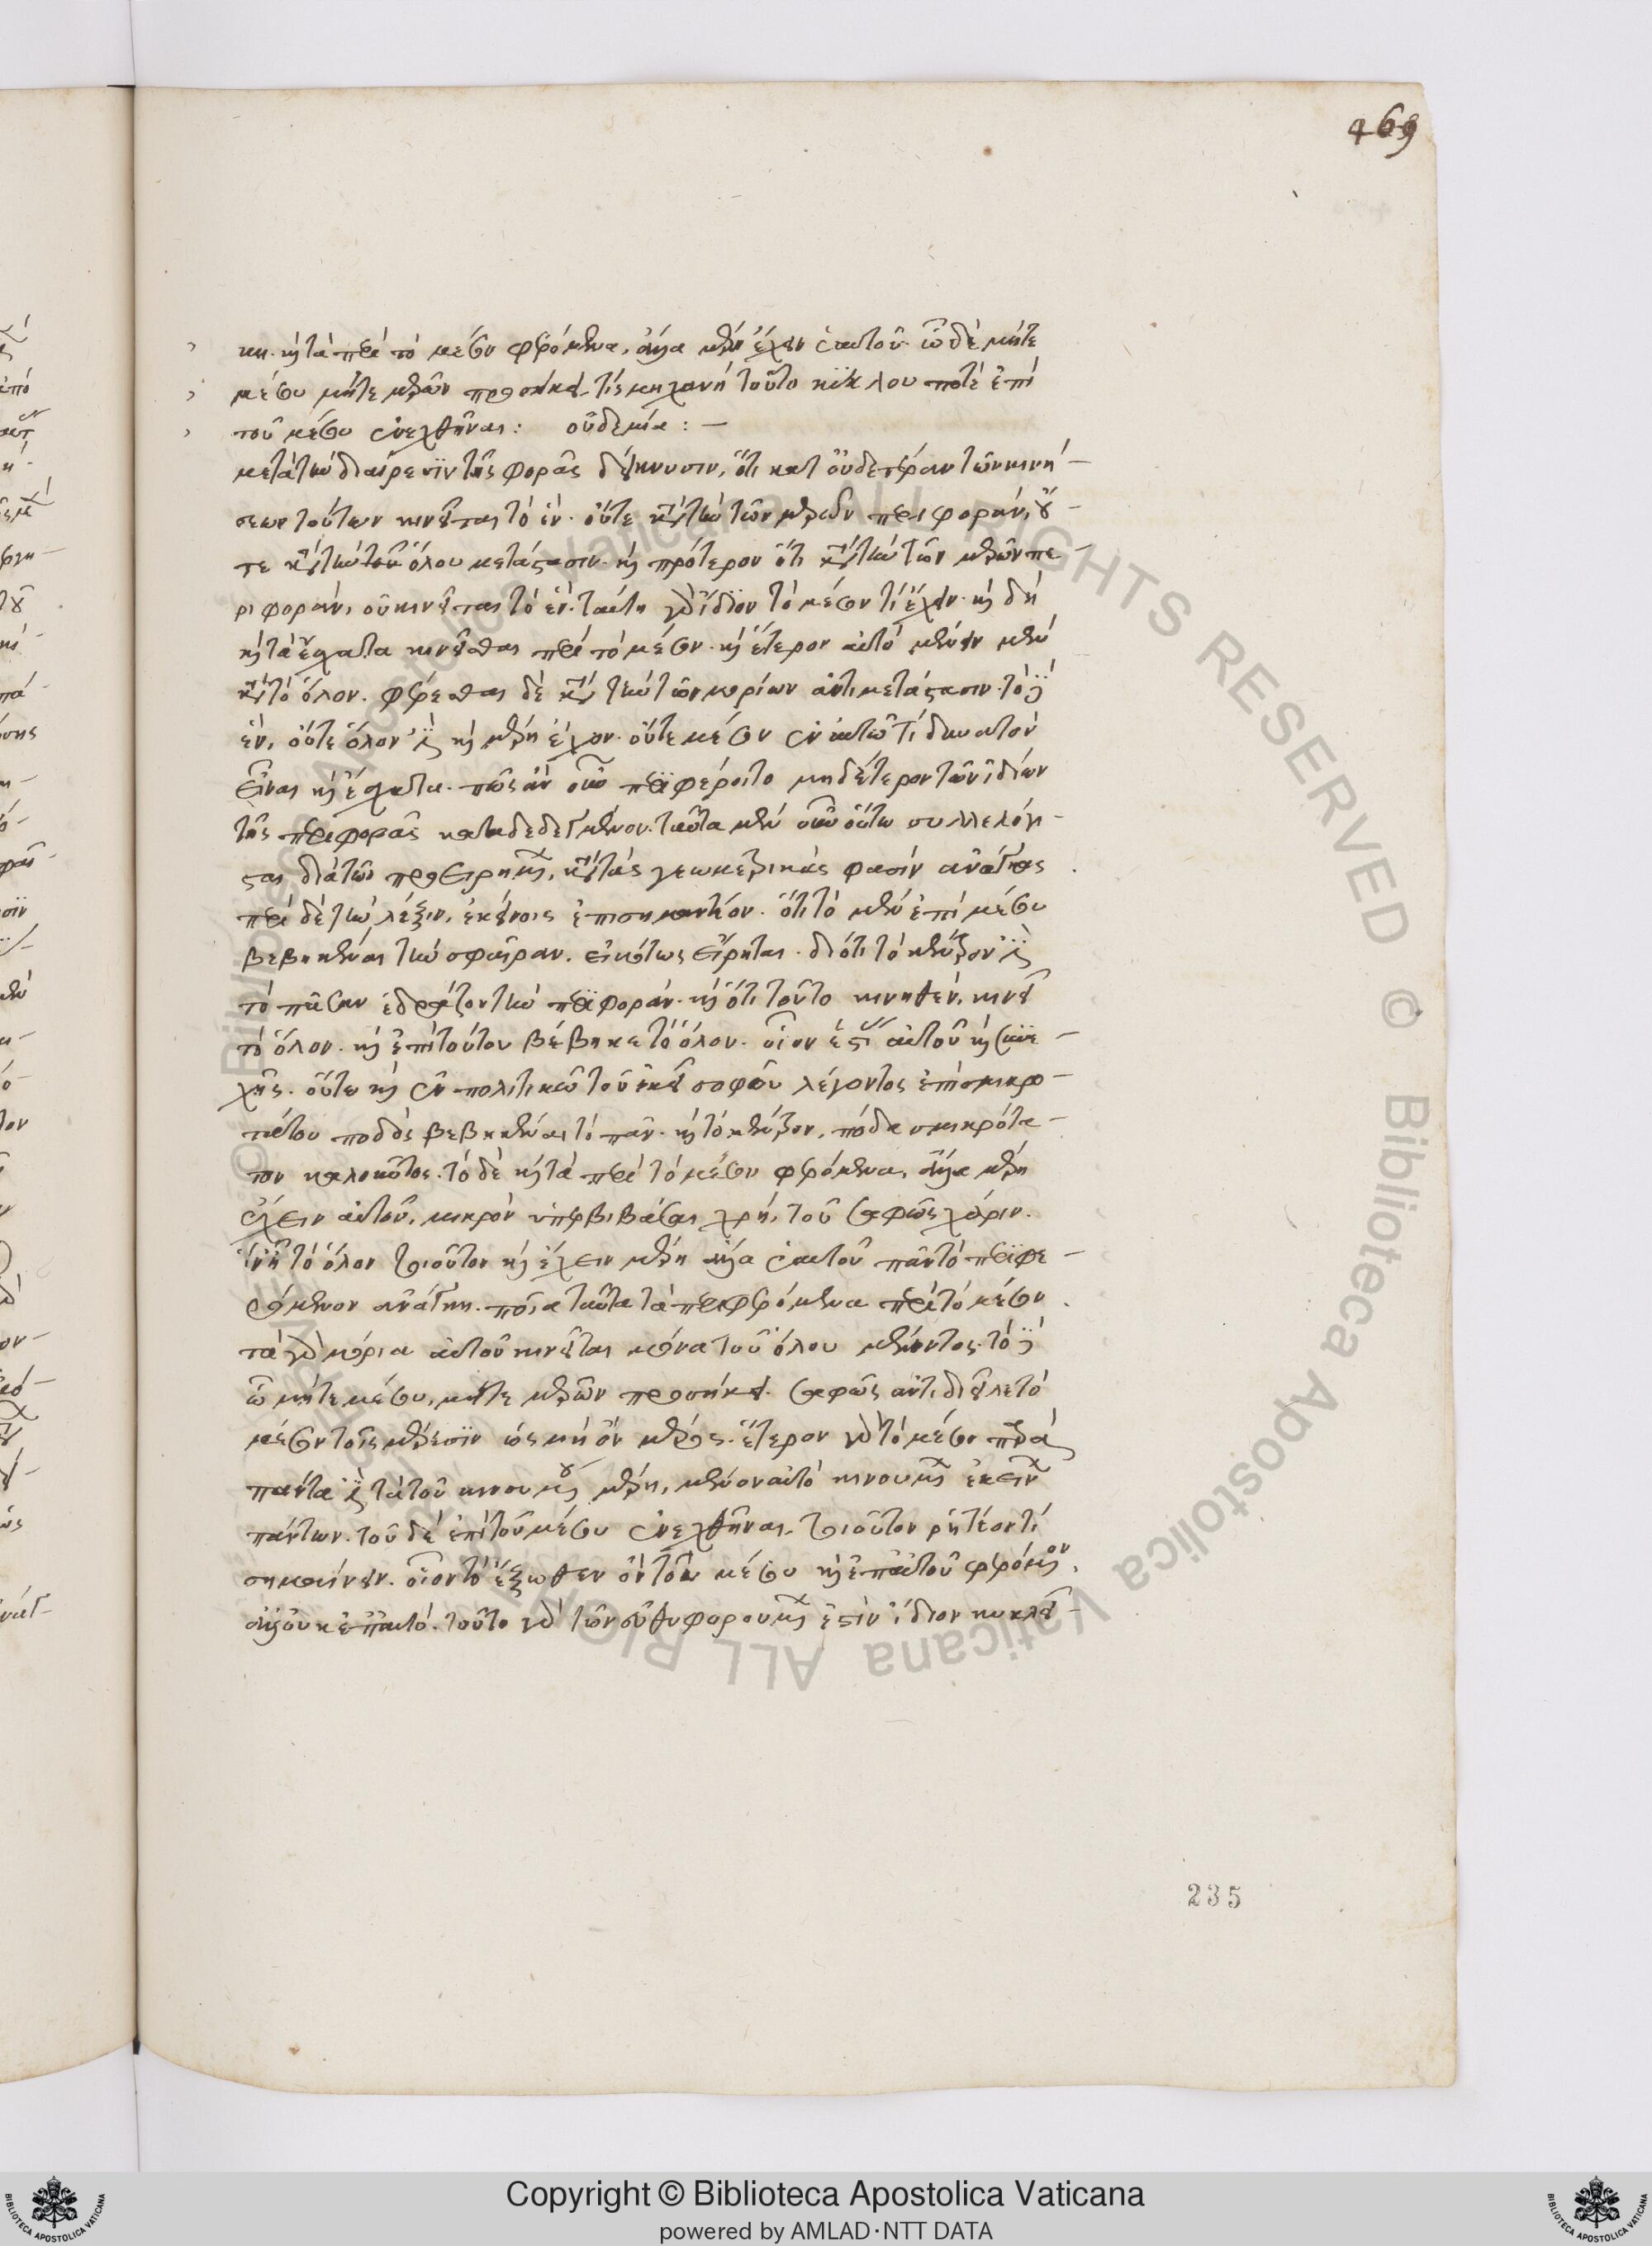 469
κη. καὶ τὰ περὶ τὸ μέσον φερόμενα, ἄλλα μέρη ἔχειν ἑαυτοῦ. ᾧ δὲ μήτε
μέσου μήτε μερῶν προσήκει, τίς μηχανὴ τοῦτο κύκλου ποτὲ ἐπὶ
τοῦ μέσου ἐνεχθῆναι: οὐδεμία: –
μετὰ τὴν διαίρεσιν τῆς φορᾶς δείκνυσιν, ὅτι κατ οὐδετέραν τῶν κινή-
σεων τούτων κινεῖται τὸ ἕν. οὔτε κατὰ τὴν τῶν μερῶν περιφοράν, οὔ-
τε κατὰ τὴν τοῦ ὅλου μετάστασιν. καὶ πρότερον ὅτι κατὰ τὴν τῶν μερῶν πε-
ριφοράν, οὐ κινεῖται τὸ ἕν. ταύτῃ γὰρ ἴδιον τὸ μέσον τί ἔχειν. καὶ δὴ
καὶ τὰ ἔσχατα κινεῖσθαι περὶ τὸ μέσον. καὶ ἕτερον αὐτὸ μένειν μὲν
κατὰ τὸ ὅλον. φέρεσθαι δὲ κατὰ τὴν τῶν μορίων ἀντιμετάστασιν. τὸ δὲ
ἕν, οὔτε ὅλον ἐστὶ καὶ μέρη ἔχον. οὔτε μέσον ἐν αὐτῷ τί δυνατὸν
εἶναι καὶ ἔσχατα. πῶς ἂν οὖν περιφέροιτο μηδέτερον τῶν ἰδίων
τῆς περιφορᾶς καταδεδεγμένον. ταῦτα μὲν οὖν οὕτω συλλελόγι-
σται διὰ τῶν προειρημένων, κατὰ τὰς γεωμετρικάς φασίν ἀνάγκας
περὶ δὲ τὴν λέξιν, ἐκείνοις ἐπισημαντέον. ὅτι τὸ μὲν ἐπὶ μέσου
βεβηκέναι τὴν σφαῖραν. εἰκότως εἴρηται. διότι τὸ κέντρον ἐστὶ
τὸ πᾶσαν ἑδράζον τὴν περιφοράν. καὶ ὅτι τοῦτο κινηθέν, κινεῖ
τὸ ὅλον. καὶ ἐπὶ τούτου βέβηκε τὸ ὅλον. οἷον ἑστία αὐτοῦ καὶ συνε-
χής. οὕτω καὶ ἐν πολιτικῷ τοῦ ἐκεῖ σοφοῦ λέγοντος ἐπὶ σμικρο-
τάτου ποδὸς βεβηκέναι τὸ πᾶν. καὶ τὸ κέντρον, πόδα σμικρότα-
τον καλοῦντος. τὸ δὲ καὶ τὰ περὶ τὸ μέσον φερόμενα, ἄλλα μέρη
ἔχειν αὐτοῦ, μικρὸν ὑπερβιβάσαι χρή, τοῦ σαφοῦς χάριν.
ἵν ᾖ τὸ ὅλον τοιοῦτον καὶ ἔχειν μέρη ἄλλα ἑαυτοῦ πᾶν τὸ περιφε-
ρόμενον ἀνάγκη. ποῖα ταῦτα τὰ περιφερόμενα περὶ τὸ μέσον.
τὰ γὰρ μόρια αὐτοῦ κινεῖται μόνα τοῦ ὅλου μένοντος. τὸ δὲ
ᾧ μήτε μέσου, μήτε μερῶν προσήκει. σαφῶς ἀντιδιεῖλε τὸ
μέσον τοῖς μέρεσιν ὡς μὴ ὂν μέρος. ἕτερον γὰρ τὸ μέσον παρὰ
πάντα ἐστὶ τὰ τοῦ κινουμένου μέρη, μένον αὐτὸ κινουμένων ἐκείνων
πάντων. τοῦ δὲ ἐπὶ τοῦ μέσου ἐνεχθῆναι, τοιοῦτον ῥητέον τί
σημαίνειν. οἷον τὸ ἔξωθεν ὂν τοῦ μέσου καὶ ἐπ αὐτοῦ φερόμενον,
ἀλλ οὐκ ἐπ αὐτό. τοῦτο γὰρ τῶν εὐθυφορουμένων ἐστὶν ἴδιον κυκλει-
235
Copyright © Biblioteca Apostolica Vaticana
powered by AMLAD·NTT DATA